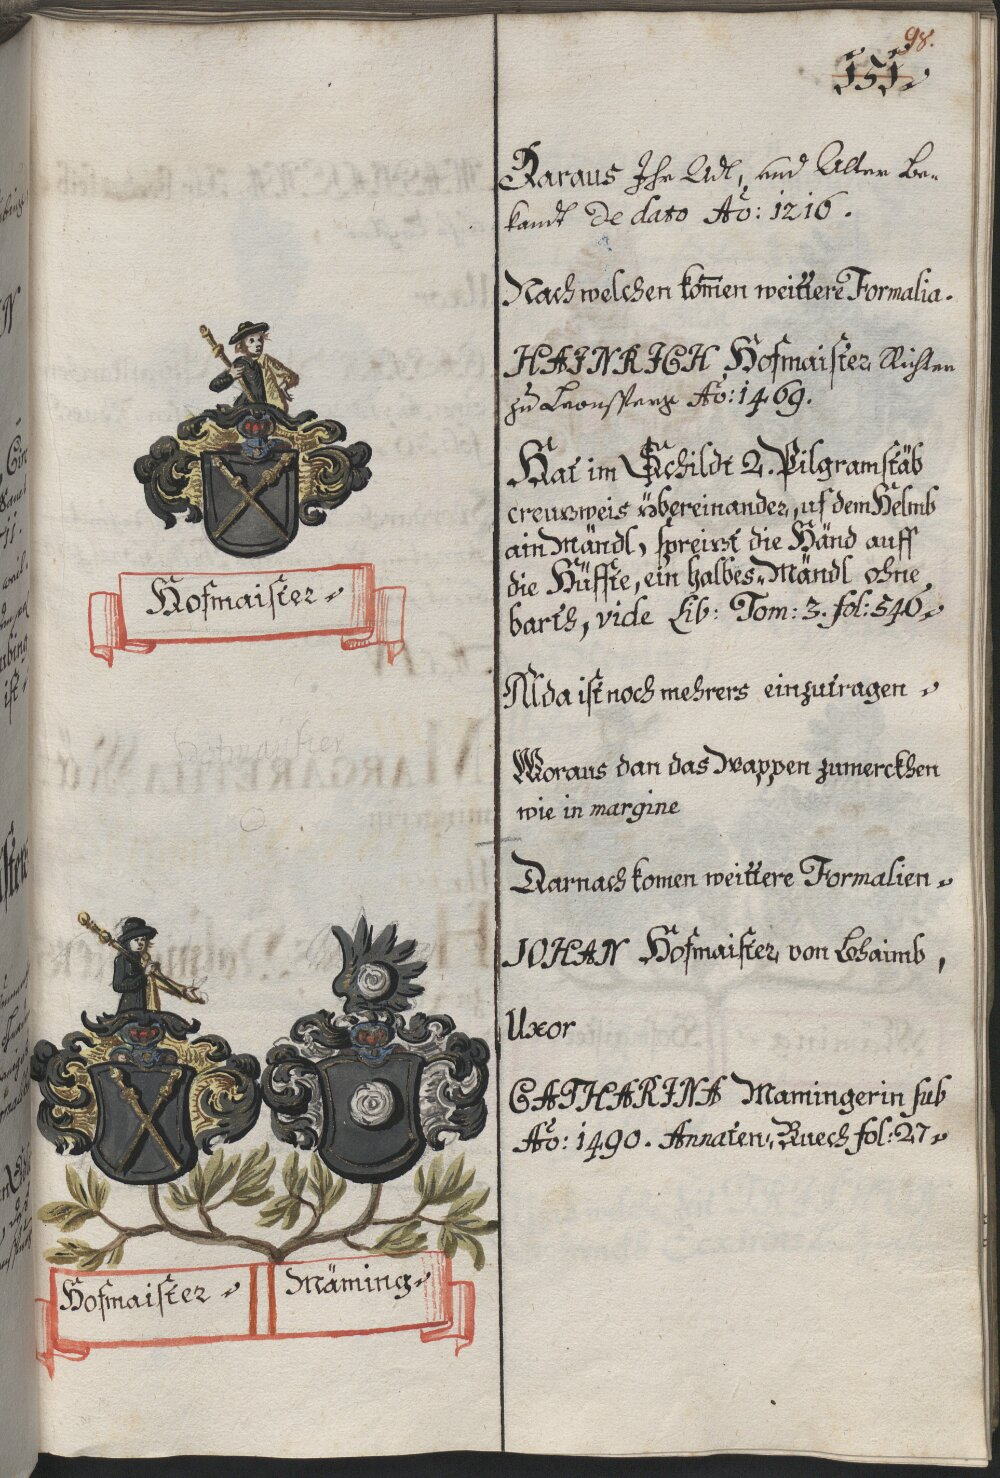 98.
151
Daraus Ihr Adl, und Alter Be-
kandt De dato Aõ: 1216.
Nach welchen kom̄en weittere Formalia.
HAINRICH Hofmaister, Richter
zu Leonsperg Aõ: 1469.
Hat im Schildt 2. Pilgramstäb
creuzweis übereinander, uf dem Helmb
ain Mändl, spreizt die Händ auff
die Hüffte, ein halbes Mändl ohne
barth, vide Lib: Tom: 3. fol: 540
Alda ist noch mehrers einzutragen
Woraus dan das Wappen zumerckhen
wie in margine
Darnach komen weittere Formalien
JOHAN Hofmaister, von Behaimb,
Uxor
CATHARINA Mamingerin sub
Aõ: 1490. Annaten Buech fol: 27
Hofmaister
Hofmaister
Hofmaister
Mäming